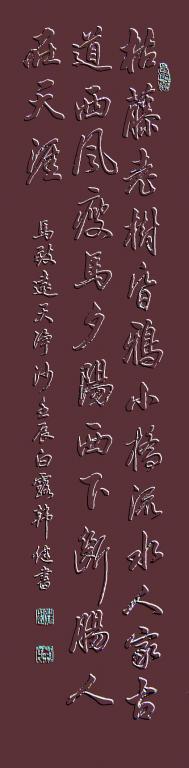 枯藤老樹昏鴉小橋流水人家古
道西風瘦馬夕陽西下斷腸人
在天涯
馬致遠天净沙壬辰白露韩健書